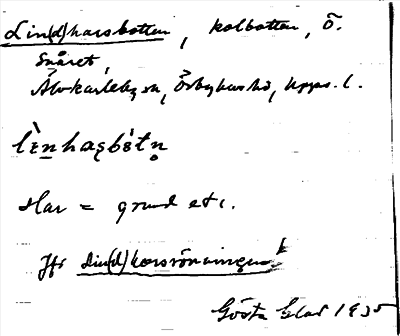 Lin(d)harsbotten, kolbotten, ö.
Snåret,
Älvkarleby sn, Örbyhus hd, Upps. l.
lɛ̀nhaʂbòtn̥
Har = grund etc.
Jfr Lin(d)harsröningen
Gösta Elas 1935